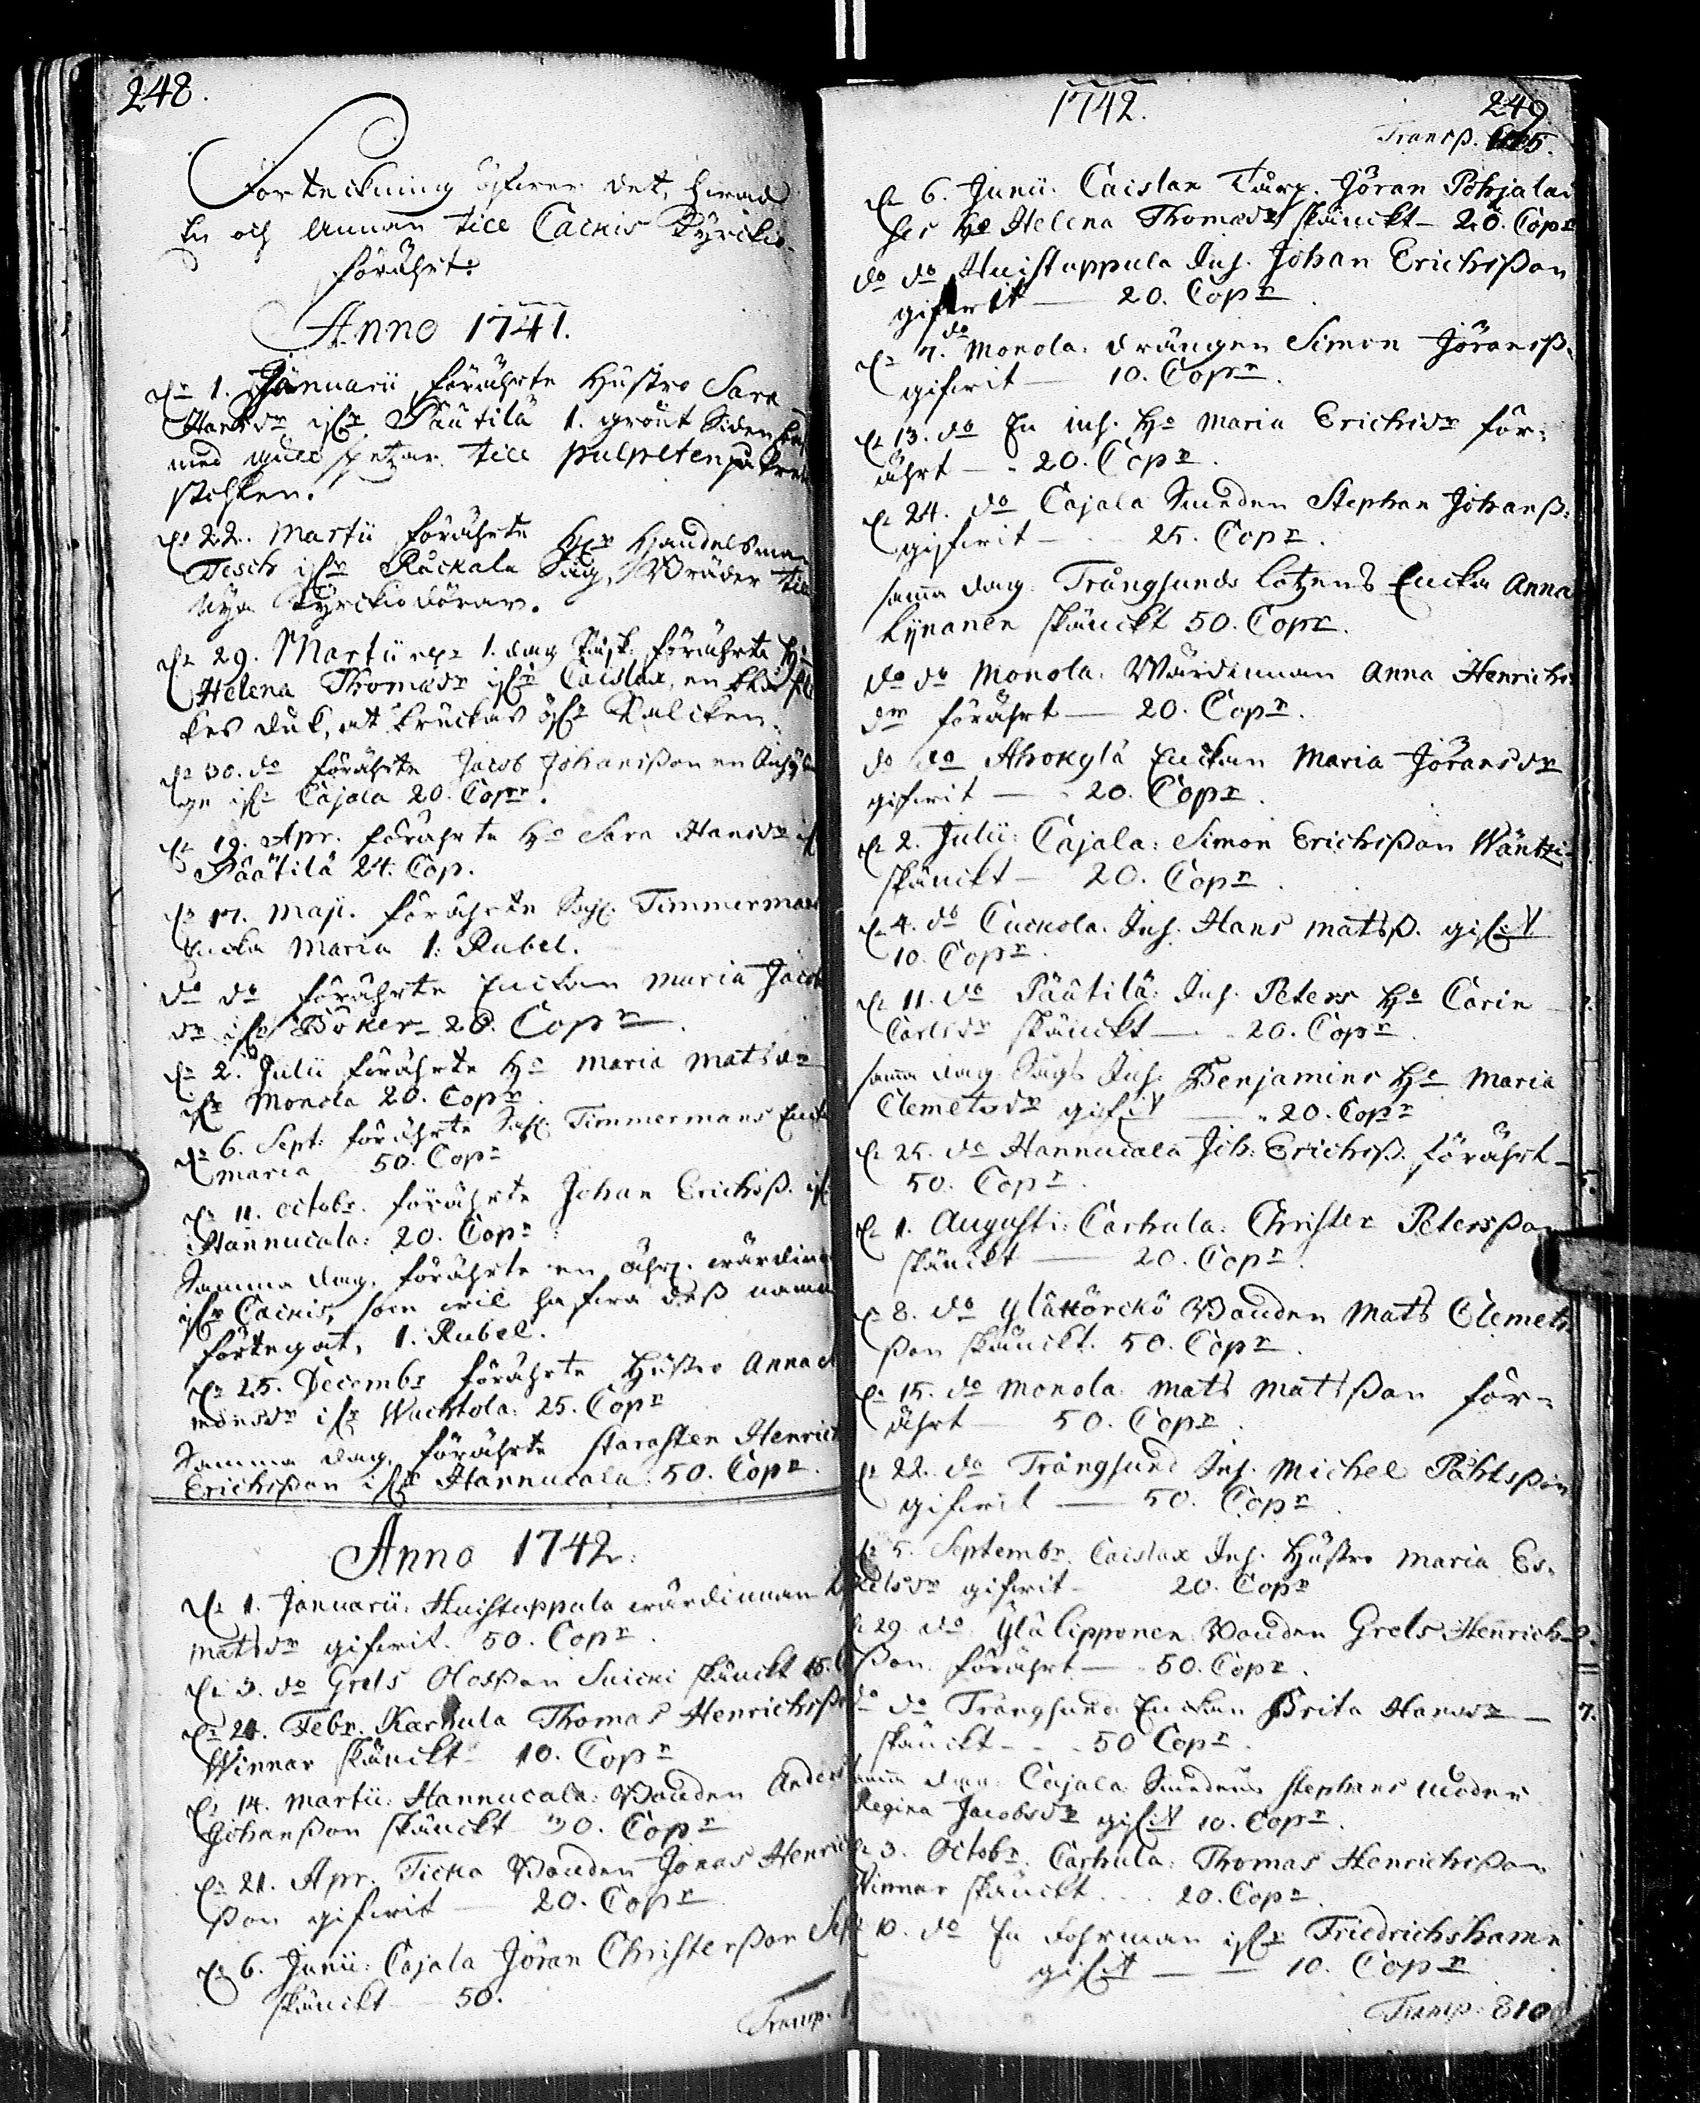 248.
Förteckning öfwer det, hwad
En och Annan till Cackis Kyrckio
förährt:
Anno 1741.
d. 1. Januarii förährte Hustro Sara
Hansdr ifr. Päätilä 1. grönt Siden
med gull spetzar till pulpeten på
stohlen.
d. 22. Martii förährte Hr Handelsman
Tesch ifr. Råckala Såg, Bräder till
Nya Kyrckiodörar.
d. 29. Martii 1. dag Påsk. förährte H:
Helena Thomædr ifr. Caislax, en
kes duk, at bruckas öfr. Kalcken.
d. 30. do förährte Jacob Johansßon en
ge ifr. Cajala 20. Copr.
d. 19. Apr. förährte Ho Sara Hansdr if
Päätilä 24. Cop.
d. 17. Maji. förährte Sahl. Timmerman
Encka Maria 1. Rubel.
do do förährte Enckan Maria Jacob
dr ifr. Böker 20. Copr.
d. 2. Julii förährte Ho Maria Matsdr
ifr. Monola 20. Copr.
d. 6. Sept: förährte Sahl. Timmermans Enck
Maria 50. Copr
d. 11. octobr. förährte Johan Erichsß. if
Hannucala: 20. Copr
Samma dag. förährte en ährl. wärdinn
ifr Cackis, som will hafwa deß namn
förtegat, 1. Rubel.
d. 25. Decembr förährte Hustro Anna
monsdr ifr Wachtola: 25. Copr
Samma dag, förährte starosten Henrich
Erichsßon ifr Hannucala: 50. Copr.
Anno 1742.
d. 1. Januarii: Huistuppula wärdinnan
Matsdr gifwit. 50. Copr.
d. 3. do Grels Olofsßon Suicki skänckt 15.
d. 24. Febr. Karhula Thomas Henrichsß
Winnar skänckt 10. Copr
d. 14. Martii: Hannucala: Bonden Anders
Johansßon skänckt 30. Copr
d. 21. Apr. Ticka Bonden Jonas Henrich
ßon gifwit — 20. Copr
d. 6. Junii: Cajala Jöran Christersßon
skänckt — 50.
Transp.
1742.
249.
Transp.
d. 6. Junii: Caislax Torp. Jöran Pohjalai
ses Ho Helena Thomædr skänckt — 20. Copr
do do Huistuppula Inh. Johan Erichsßon
gifwit — 20. Copr.
d. 7. do Monola: drängen Simon Jöransß.
gifwit — 10. Copr.
d. 13. do En inh. Ho Maria Erichsdr för=
ährt — 20. Copr.
d. 24. do Cajala Smeden Stephan Johansß:
gifwit — 25. Copr.
samma dag: Trångsunds Lotzens Encka Anna
Kynanen skänckt 50. Copr.
do do Monola: Wärdinnan Anna Henrichs
dr förährt — 20. Copr.
do do Ahokylä Enckan Maria Jöransdr
gifwit — 20. Copr.
d. 2. Julii: Cajala: Simon Erichsßon Wäntzi
skänckt — 20. Copr.
d. 4. do Cuckola. Inh. Hans Matsß. gifwit
10. Copr.
d. 11. do Päätilä: Inh. Peters Ho Carin
Carlsdr skänckt — 20. Copr.
samma dag Sågs Inh: Benjamins Ho Maria
Clemetsdr gifwit — 20. Copr
d. 25. do Hannucala Joh: Erichsß. förährt
50. Copr.
d. 1. Augusti: Carhula: Christer Petersßon
skänckt — 20. Copr.
d. 8. do Ylätörckö Bonden Mats Clemets
ßon skänckt. 50. Copr.
d. 15. do Monola: Mats Matsßon för=
ährt — 50. Copr.
d. 22. do Trångsund Inh. Michel Påhlsßon
gifwit — 50. Copr.
d. 5. Septembr. Caislax Inh. Hustro Maria Es=
kelsdr gifwit — 20. Copr
d. 29. do. Ylälipponen. Bonden Grels Henrichs
ßon förährt — 50. Copr.
do do Trångsund Enckan Brita Hansdr —
skänckt — 50 Copr.
samma dag: Cajala Smedens Stephans moder
Regina Jacobsdr gifwit 10. Copr.
d. 3. Octobr. Carhula: Thomas Henrichsßon
Winnar skänckt. 20. Copr.
d. 10. do En Fohrman ifr Friedrichshamn
gifwit — 10. Copr
Transp: 810